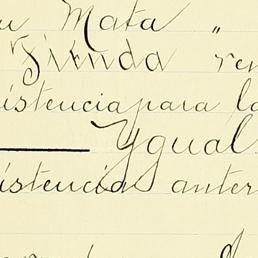 Mata "
Tienda
istencia para la
Ygual
istencias anter